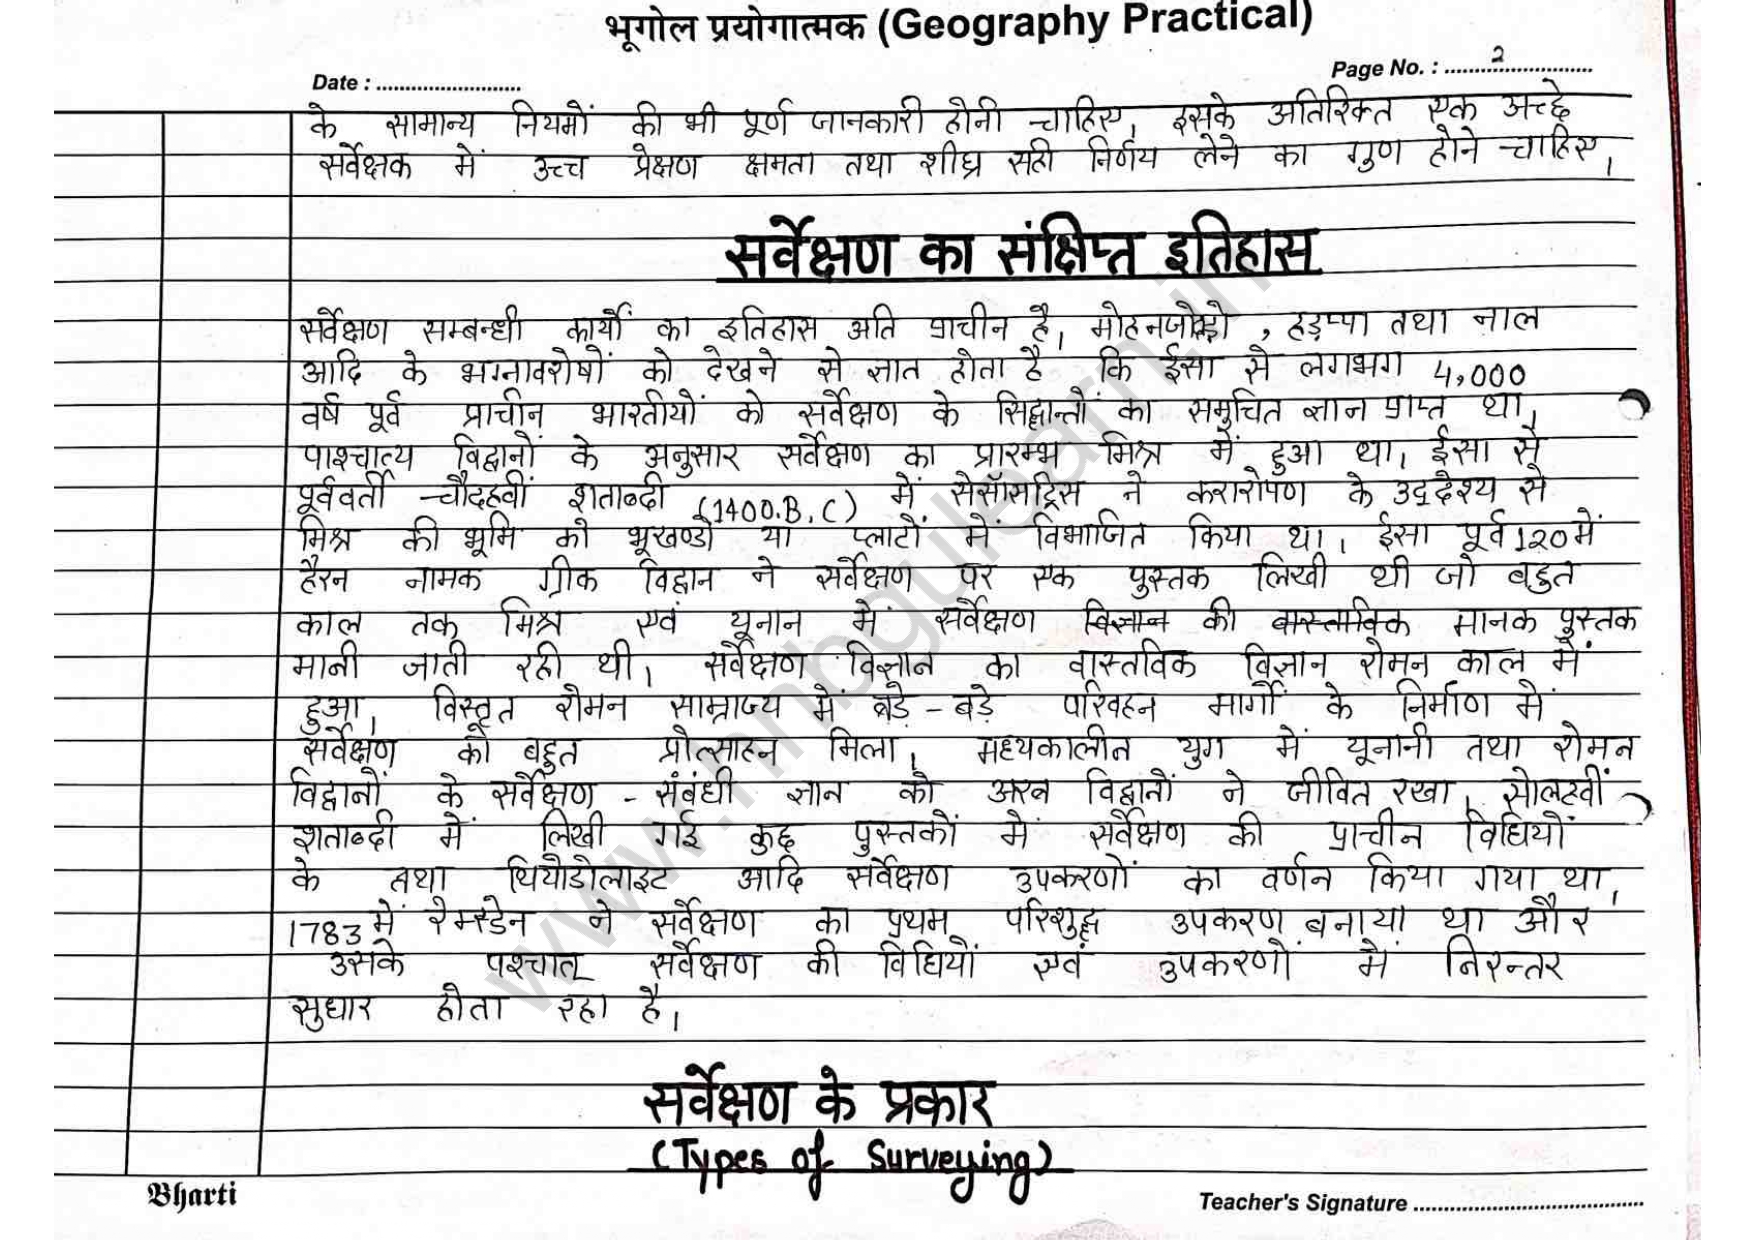 भूगोल प्रयोगात्मक (Geography Practical)
Date : ........................
Page No. : ........2...............
के सामान्य नियमों की भी पूर्ण जानकारी होनी चाहिए, इसके अतिरिक्त एक अच्छे
सर्वेक्षक में उच्च प्रेक्षण क्षमता तथा शीघ्र सही निर्णय लेने का गुण होने चाहिए,
सर्वेक्षण का संक्षिप्त इतिहास
सर्वेक्षण सम्बन्धी कार्यों का इतिहास अति प्राचीन है, मोहनजोदड़ो , हड़प्पा तथा नाल
आदि के भग्नावशेषों को देखने से ज्ञात होता है कि ईसा से लगभग 4,000
वर्ष पूर्व प्राचीन भारतीयों को सर्वेक्षण के सिद्धान्तों का समुचित ज्ञान प्राप्त था,
पाश्चात्य विद्वानों के अनुसार सर्वेक्षण का प्रारम्भ मिश्र में हुआ था, ईसा से
पूर्ववर्ती चौदहवीं शताब्दी (1400.B.C) में सेसॉसट्रिस ने करारोपण के उद्देश्य से
मिश्र की भूमि को भूखण्डो या प्लाटों में विभाजित किया था, ईसा पूर्व 120 में
हैरन नामक ग्रीक विद्वान ने सर्वेक्षण पर एक पुस्तक लिखी थी जो बहुत
काल तक मिश्र एवं यूनान में सर्वेक्षण विज्ञान की वास्तविक मानक पुस्तक
मानी जाती रही थी, सर्वेक्षण विज्ञान का वास्तविक विज्ञान रोमन काल में
हुआ, विस्तृत रोमन साम्राज्य में बड़े - बड़े परिवहन मार्गों के निर्माण में
सर्वेक्षण को बहुत प्रोत्साहन मिला, मध्यकालीन युग में यूनानी तथा रोमन
विद्वानों के सर्वेक्षण - संबंधी ज्ञान को अरब विद्वानों ने जीवित रखा, सोलहवीं
शताब्दी में लिखी गई कुछ पुस्तकों में सर्वेक्षण की प्राचीन विधियों
के तथा थियोडोलाइट आदि सर्वेक्षण उपकरणों का वर्णन किया गया था,
1783 में रेम्स्डेन ने सर्वेक्षण का प्रथम परिशुद्ध उपकरण बनाया था और
उसके पश्चात् सर्वेक्षण की विधियों एवं उपकरणों में निरन्तर
सुधार होता रहा है,
सर्वेक्षण के प्रकार
(Types of Surveying)
Bharti
Teacher's Signature ......................................
www.hnbgulearn.in